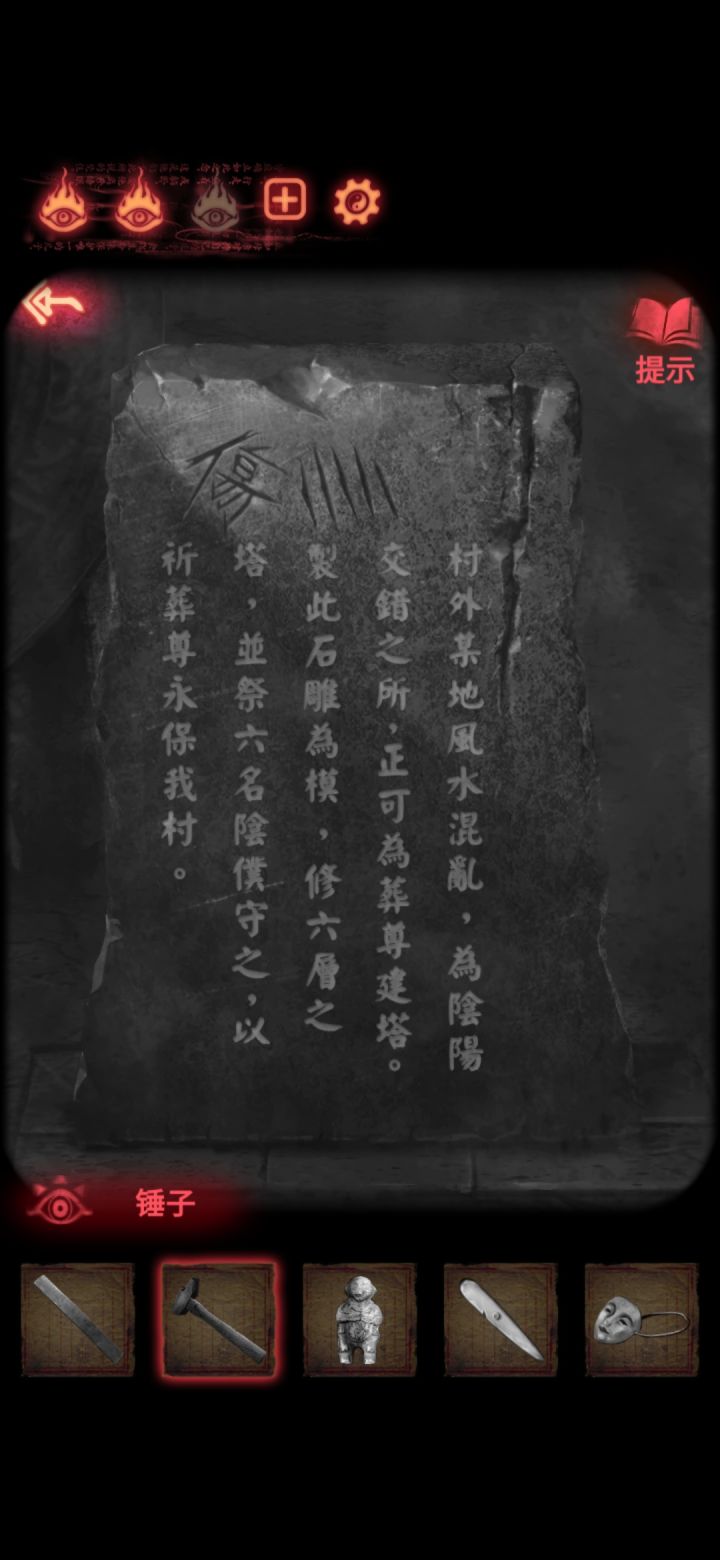 提示
傷
村外某地風水混亂，為陰陽
交錯之所，正可為葬尊建塔。
製此石雕為模，修六層之
塔，並祭六名陰僕守之，以
祈葬尊永保我村。
锤子